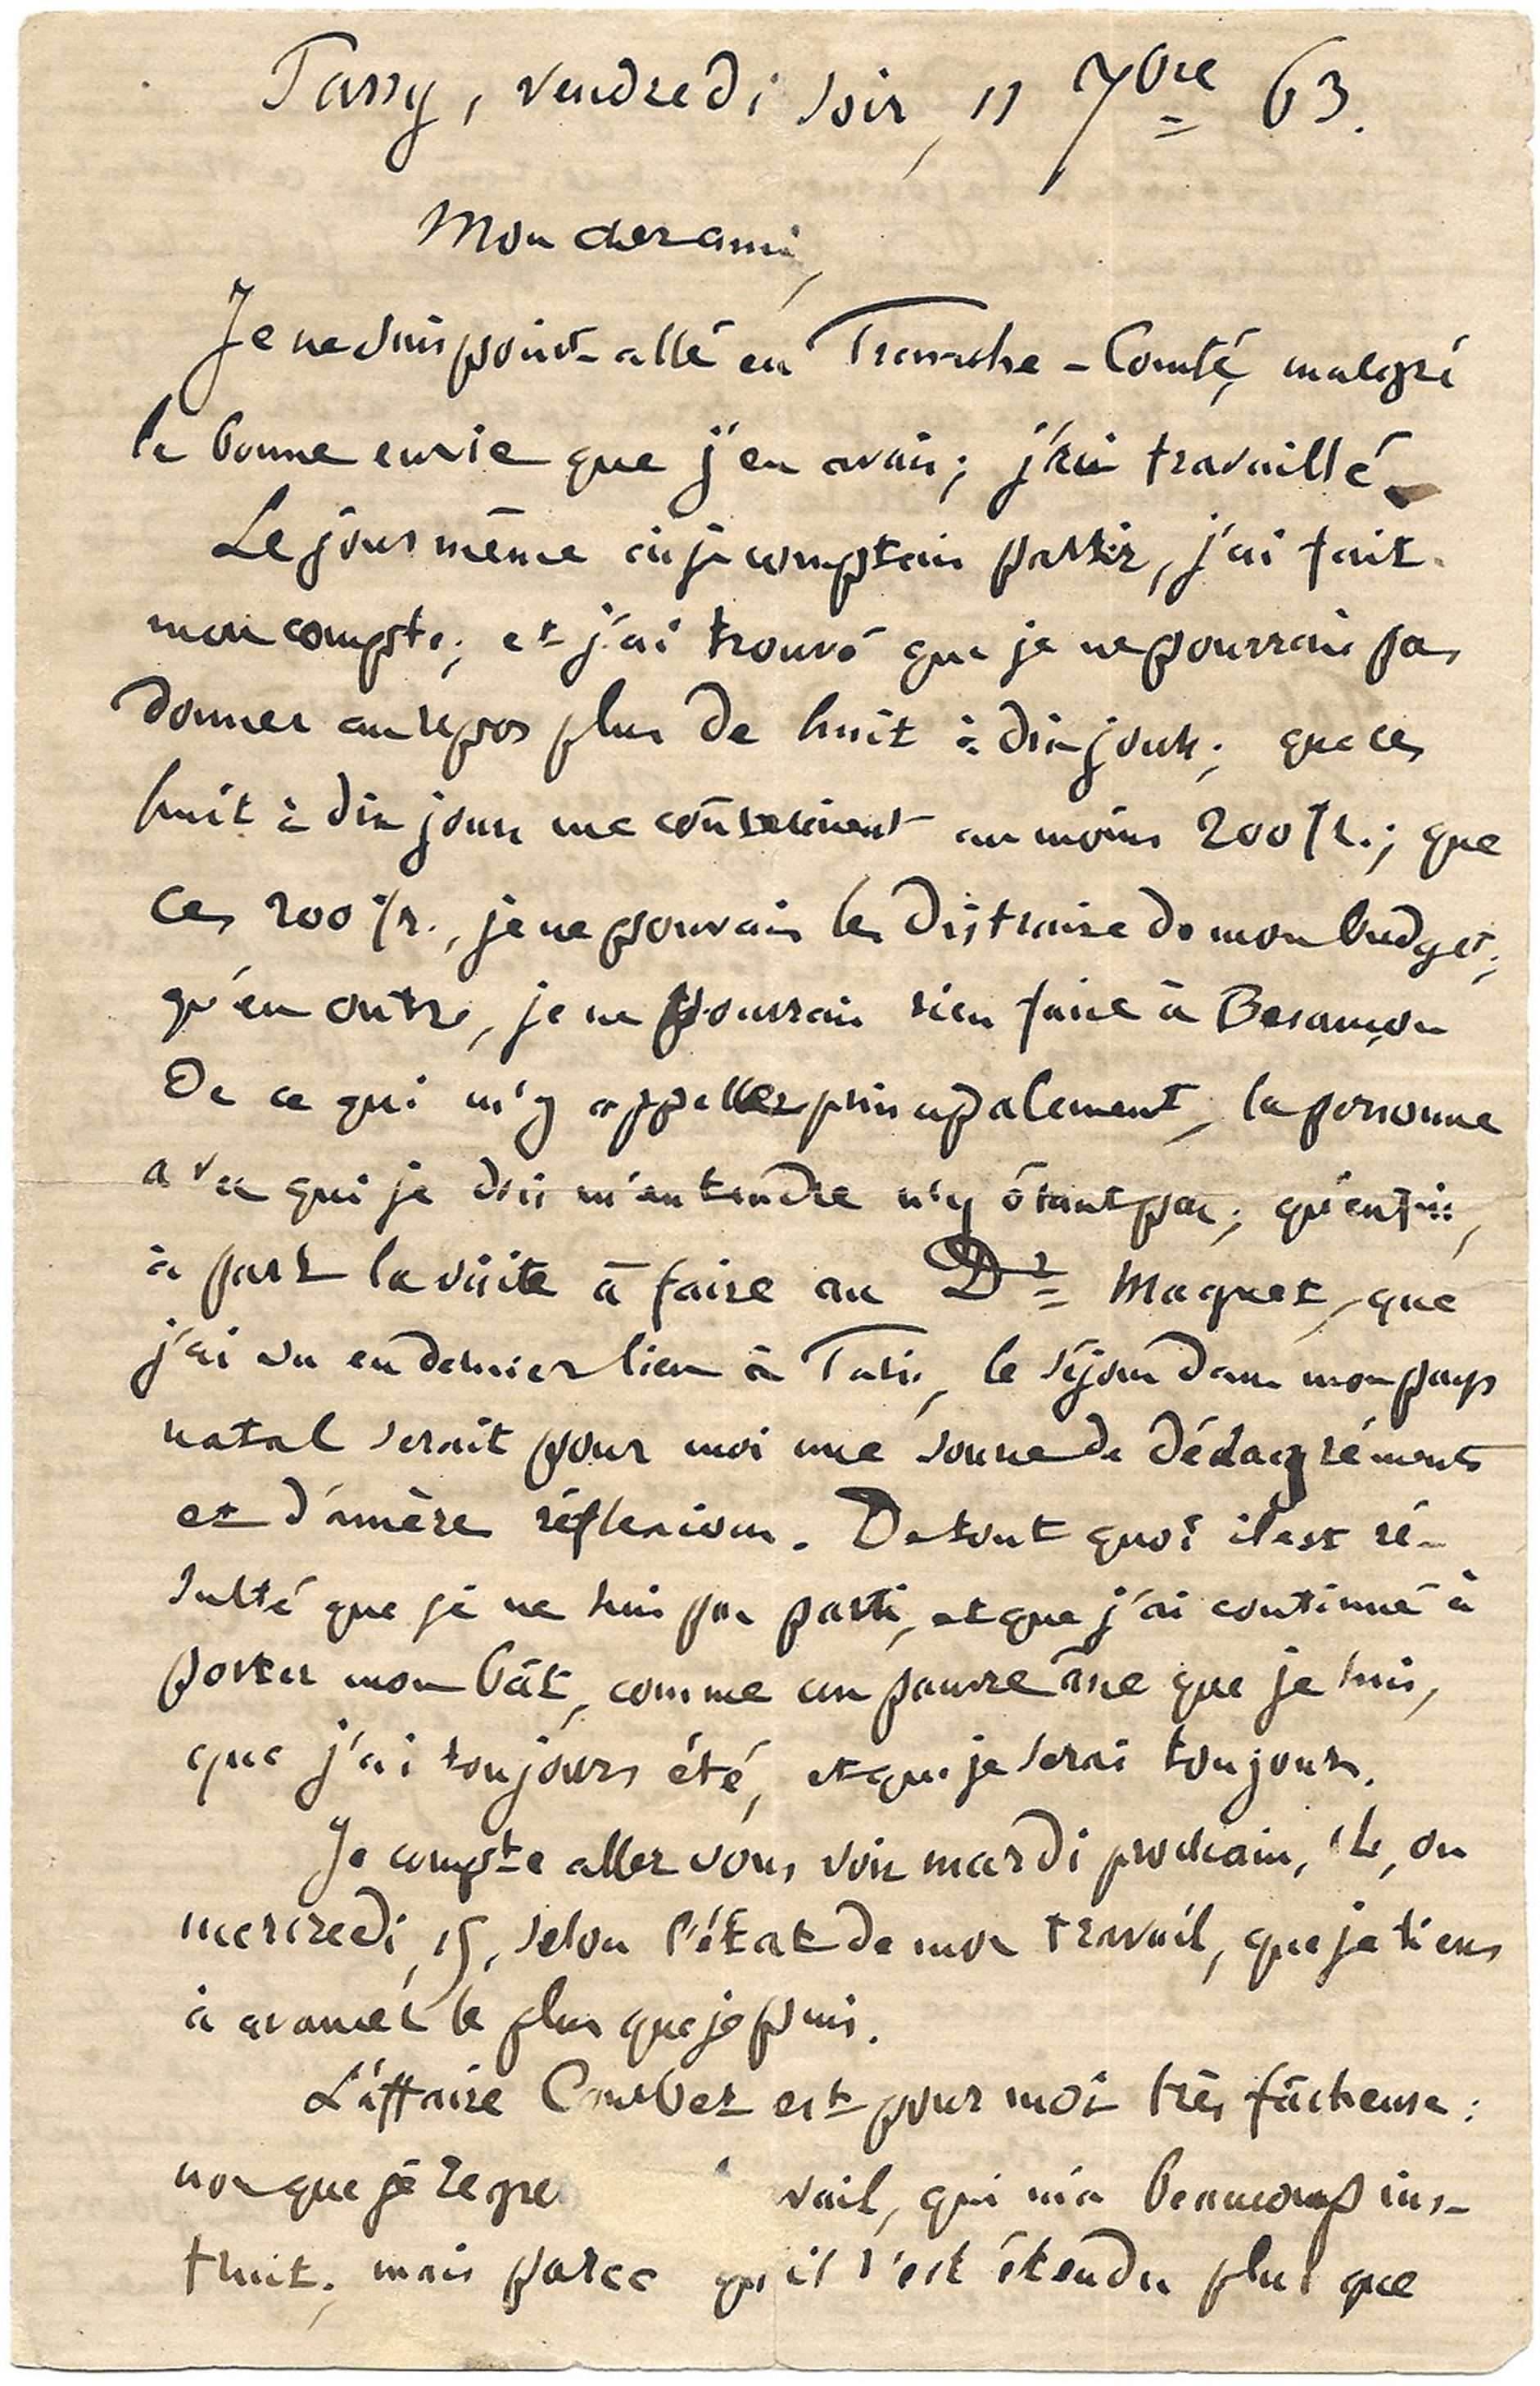 Passy, vendredi soir, 11 7bre 63.
Mon cher ami,
Je ne suis point allé en Franche-Comté, malgré
la bonne envie que j'en avais; j'ai travaillé.
Le jour même où je comptais partir, j'ai fait
mon compte; et j'ai trouvé que je ne pourrais pas
donner au repos plus de huit à dix jours; que ces
huit à dix jours me coûteraient au moins 200 fr.; que
ces 200 fr., je ne pouvais les distraire de mon budget;
qu'en outre, je ne pourrais rien faire à Besançon
De ce qui m'y appelle principalement, la personne
avec qui je dois m'entendre n'y étant pas; qu'enfin,
à part la visite à faire au Dr Maguet, que
j'ai vu en dernier lieu à Paris, le séjour dans mon pays
natal serait pour moi une source de désagréments
et d'amère réflexions. De tout quoi il est ré-
sulté que je ne suis pas parti, et que j'ai continué à
porter mon bât, comme un pauvre âne que je suis,
que j'ai toujours été, et que je serai toujours.
Je compte aller vous voir mardi prochain, 14, ou
mercredi, 15, selon l'état de mon travail, que je tiens
à avancer le plus que je puis.
L'affaire Courbet est pour moi très fâcheuse:
non que je regre vail, qui m'a beaucoup ins-
truit; mais parce qu'il s'est étendu plus que